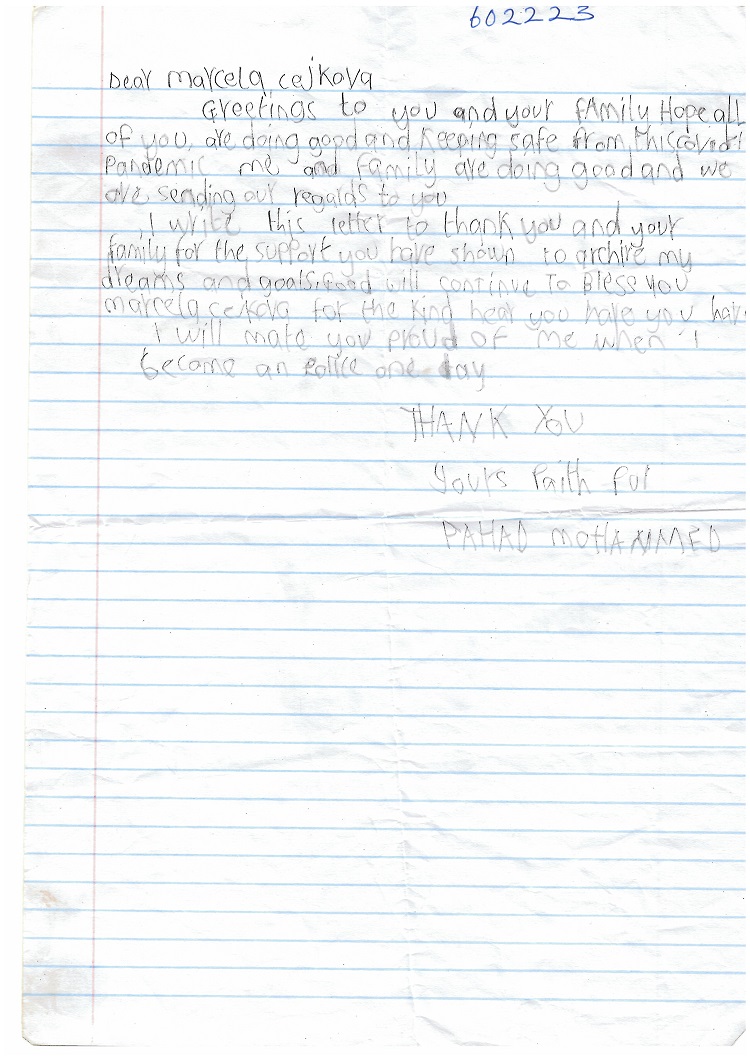 602223
Dear marcela cejkova
Greetings to you and your fAMily Hope all
of you, are doing good and keeping safe from, this covid 1
Pandemic me and family are doing good and we
are sending our regards to you
I write this letter to thank you and your
family for the support you have shown to archire my
dreams and goals. Good will continue To Bless you
marcela cejkova for the kind hear you have you hav
I will make you proud of me when I
become an police one day
THANK YOU
yours faith ful
PAHAD MOHAMMED